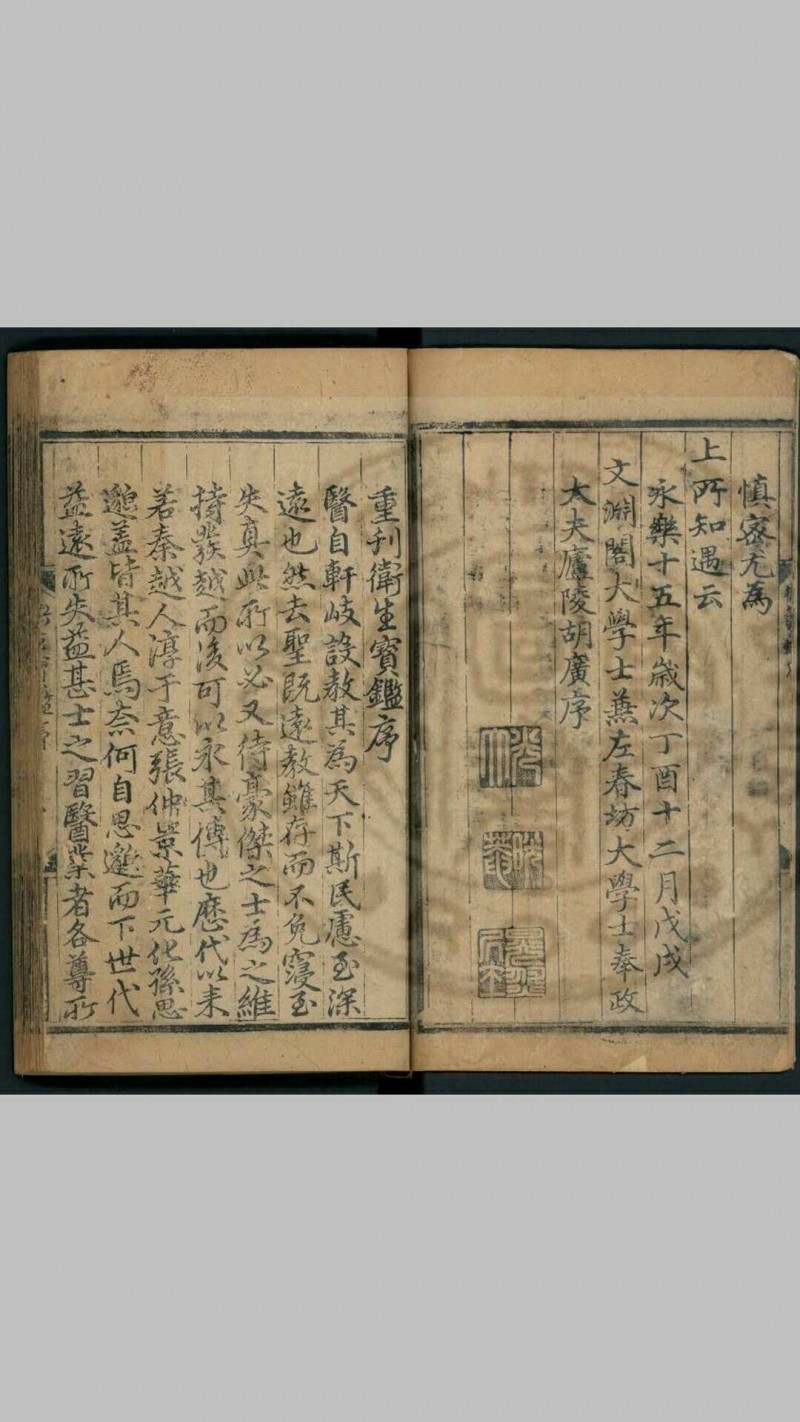 慎密尤為
上所知遇云
永樂十五年歲次丁酉十二月戊戌
文淵閣大學士兼左春坊大學士奉政
大夫廬陵胡廣序
重刊衛生寶鑑序
醫自軒岐設教其為天下斯民慮至深
遠也然去聖既遠教雖存而不免寖至
失真此所以必又待豪傑之士為之維
持發越而後可以永其傳也歷代以来
若秦越人淳于意張仲景華元化孫思
邈盖皆其人焉柰何自思邈而下世代
益遠所失益甚士之習醫業者各尊所